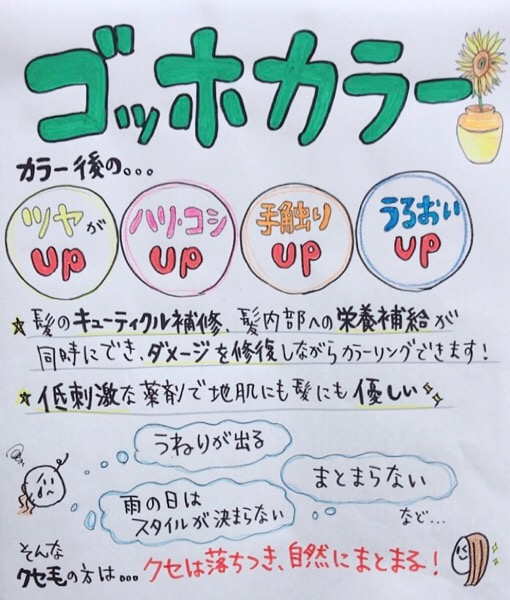 ゴッホカラー
カラー後の...
ツヤが
UP
ハリ・コシ
UP
手触り
UP
うるおい
UP
★髪のキューティクル補修、髪内部への栄養補給が
同時にでき、ダメージを修復しながらカラーリングできます!
★低刺激な薬剤で地肌にも髪にも優しい
うねりが出る
まとまらない
雨の日は
スタイルが決まらない
など...
そんな
クセ毛の方は...クセは落ちつき、自然にまとまる!